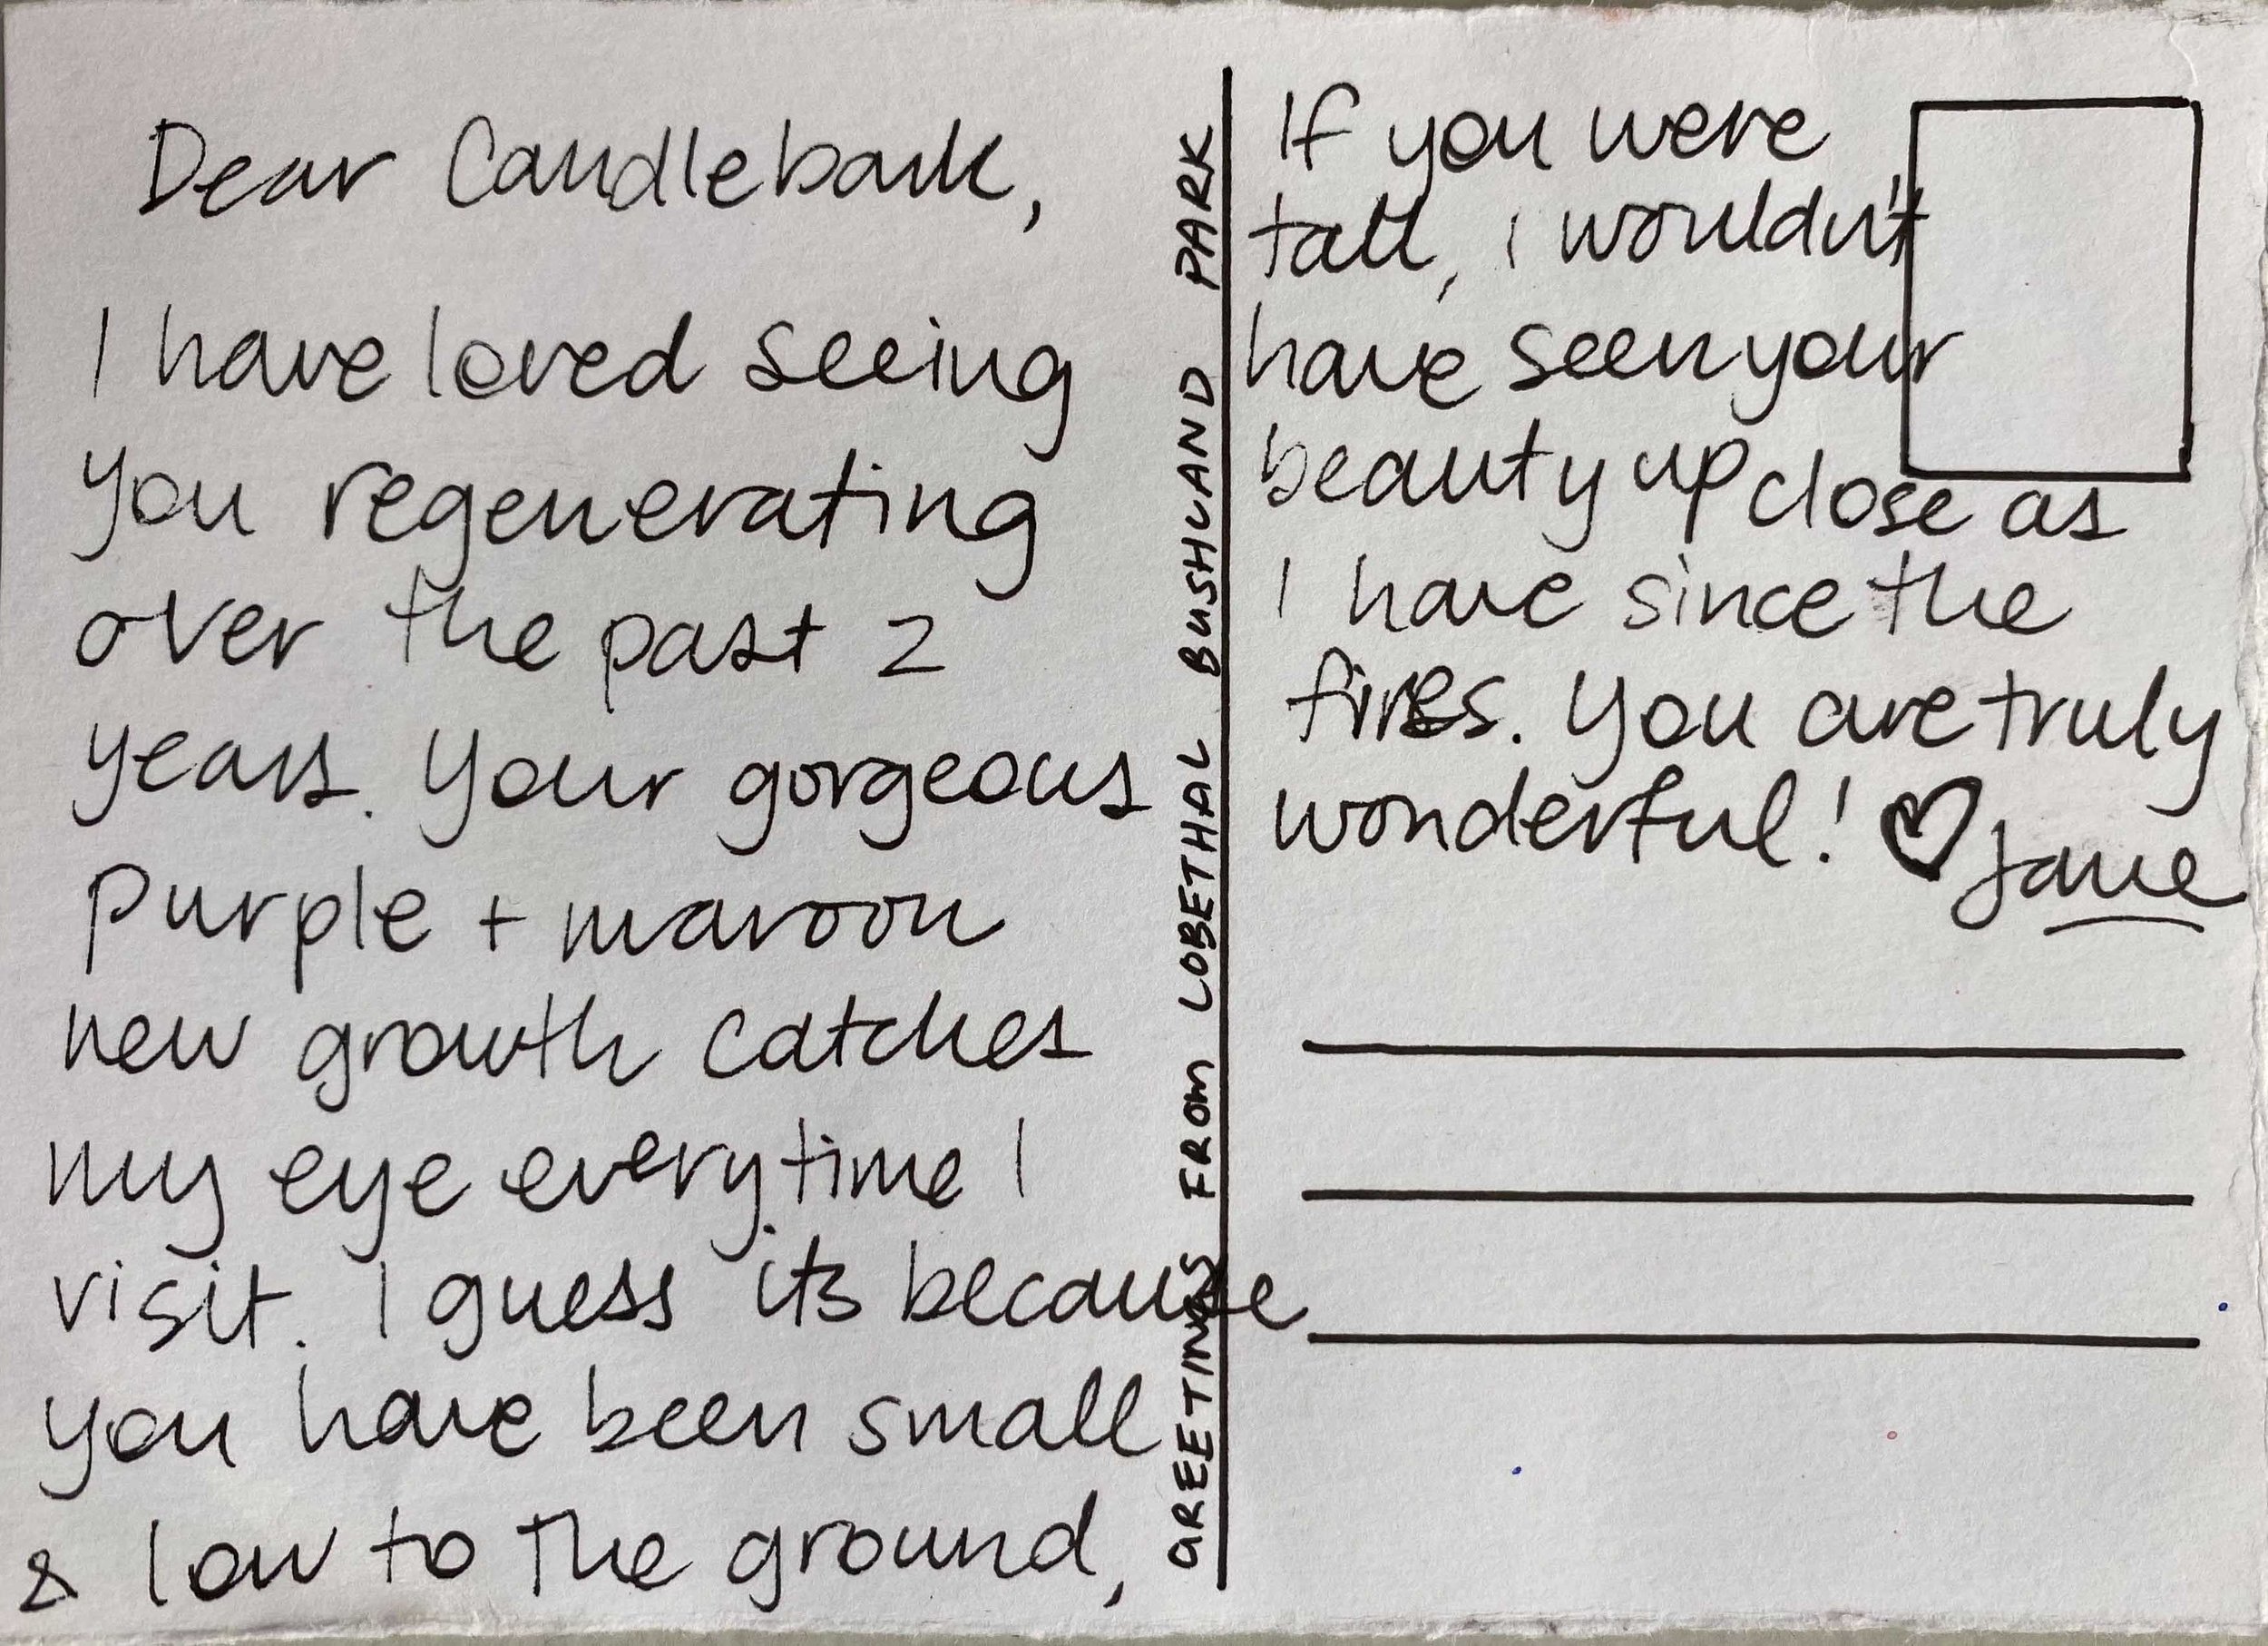 Dear Candlebark,
I have loved seeing
you regenerating
over the past 2
years. Your gorgeous
purple + maroon
new growth catches
my eye everytime I
visit. I guess its because
you have been small
& low to the ground,
GREETINGS FROM LOBETHAL BUSHLAND PARK
If you were
tall, i wouldn't
have seen your
beauty up close as
I have since the
fires. You are truly
wonderful! ♡ Jane